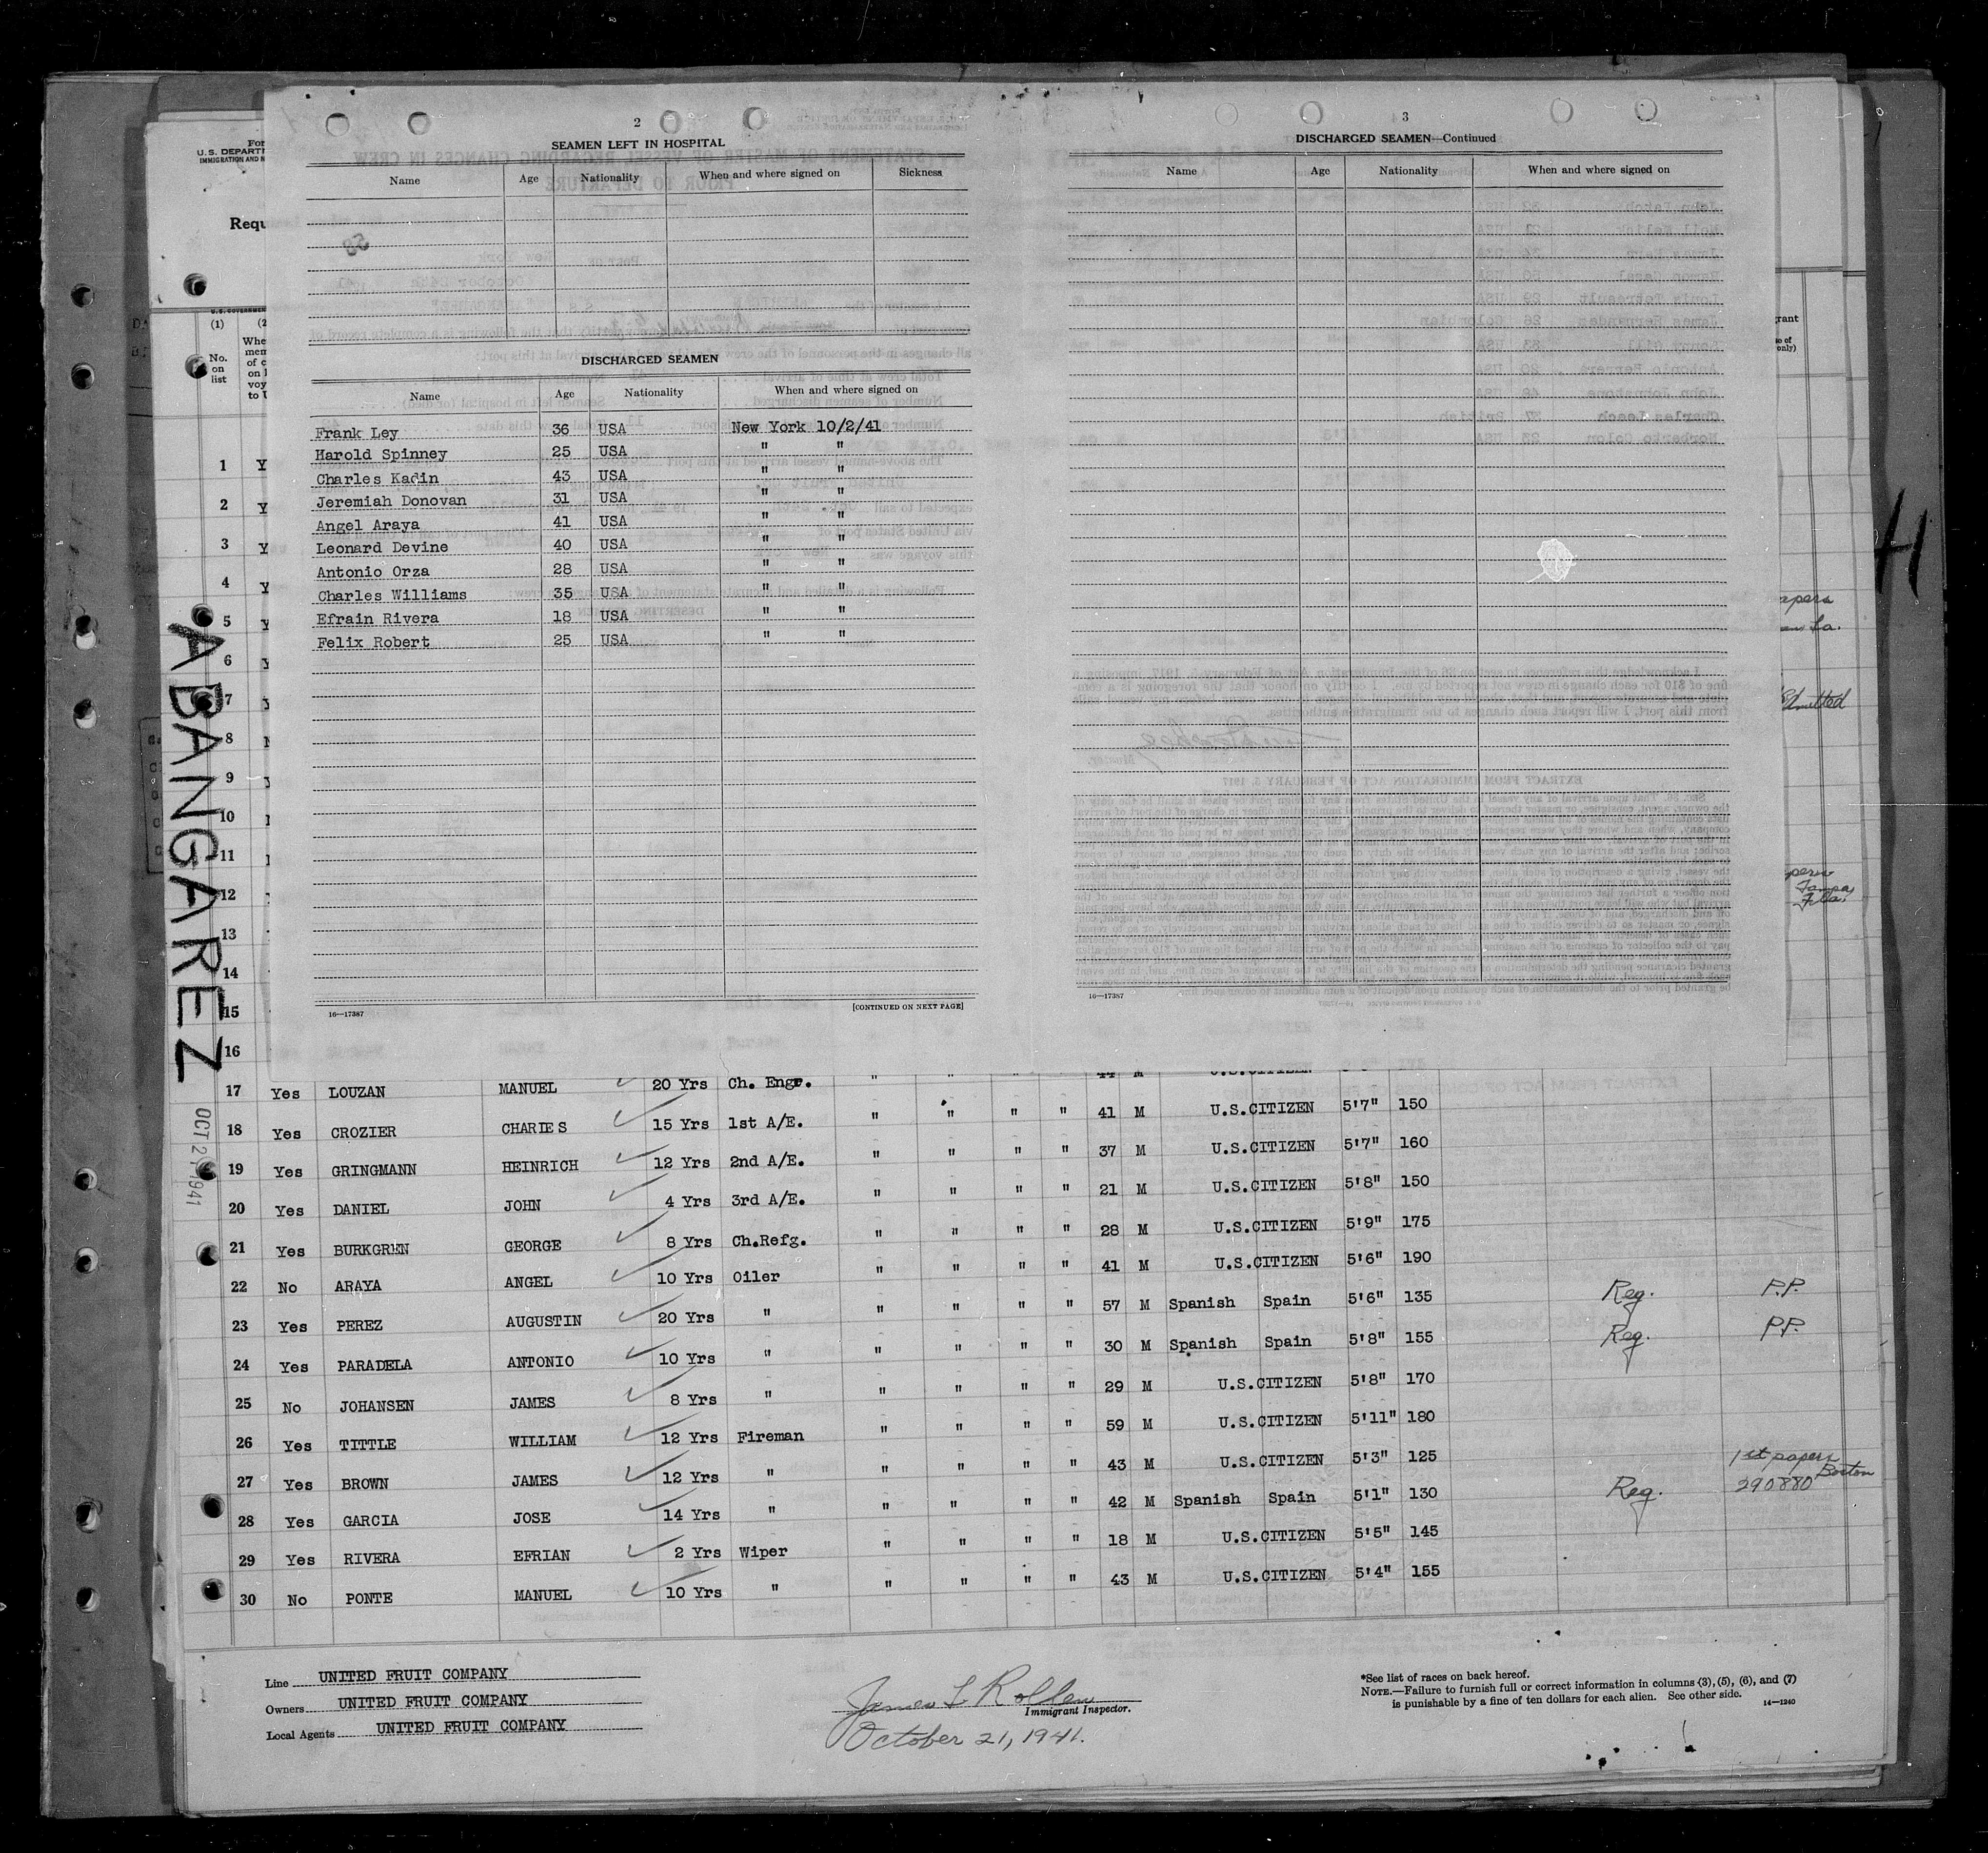 2
SEAMEN LEFT IN HOSPITAL
Name Age Nationality When and where signed on Sickness
DISCHARGED SEAMEN
Name Age Nationality When and where signed on
Frank Ley 36 USA New York 10/2/41
Harold Spinney 25 USA " "
Charles Kadin 43 USA " "
Jeremiah Donovan 31 USA " "
Angel Araya 41 USA " "
Leonard Devine 40 USA " "
Antonio Orza 28 USA " "
Charles Williams 35 USA " "
Efrain Rivera 18 USA " "
Felix Robert 25 USA " "
16—17387
[CONTINUED ON NEXT PAGE]
3
DISCHARGED SEAMEN—Continued
Name Age Nationality When and where signed on
16—17387
U.S. DEPART
IMMIGRATION AND N
Requ
(1)
No. on list
1 Y
2 Y
3 Y
4 Y
5 Y
6 Y
7
8
9
10
11
12
13
14
15
16
ABANGAREZ
OCT 21 1941
17 Yes LOUZAN MANUEL 20 Yrs Ch. Engr. " " " " 44 M U.S.CITIZEN
18 Yes CROZIER CHARLES 15 Yrs 1st A/E. " " " " 41 M U.S.CITIZEN 5'7" 150
19 Yes GRINGMANN HEINRICH 12 Yrs 2nd A/E. " " " " 37 M U.S.CITIZEN 5'7" 160
20 Yes DANIEL JOHN 4 Yrs 3rd A/E. " " " " 21 M U.S.CITIZEN 5'8" 150
21 Yes BURKGREN GEORGE 8 Yrs Ch.Refg. " " " " 28 M U.S.CITIZEN 5'9" 175
22 No ARAYA ANGEL 10 Yrs Oiler " " " " 41 M U.S.CITIZEN 5'6" 190
23 Yes PEREZ AUGUSTIN 20 Yrs " " " " " 57 M Spanish Spain 5'6" 135 Reg. P.P.
24 Yes PARADELA ANTONIO 10 Yrs " " " " " 30 M Spanish Spain 5'8" 155 Reg. P.P.
25 No JOHANSEN JAMES 8 Yrs " " " " " 29 M U.S.CITIZEN 5'8" 170
26 Yes TITTLE WILLIAM 12 Yrs Fireman " " " " 59 M U.S.CITIZEN 5'11" 180
27 Yes BROWN JAMES 12 Yrs " " " " " 43 M U.S.CITIZEN 5'3" 125
28 Yes GARCIA JOSE 14 Yrs " " " " " 42 M Spanish Spain 5'1" 130 Reg. 1st papers Boston 290880
29 Yes RIVERA EFRIAN 2 Yrs Wiper " " " " 18 M U.S.CITIZEN 5'5" 145
30 No PONTE MANUEL 10 Yrs " " " " " 43 M U.S.CITIZEN 5'4" 155
Line UNITED FRUIT COMPANY
Owners UNITED FRUIT COMPANY
Local Agents UNITED FRUIT COMPANY
James L Rollen
Immigrant Inspector.
October 21, 1941.
*See list of races on back hereof.
NOTE.—Failure to furnish full or correct information in columns (3), (5), (6), and (7)
is punishable by a fine of ten dollars for each alien. See other side.
14—1240